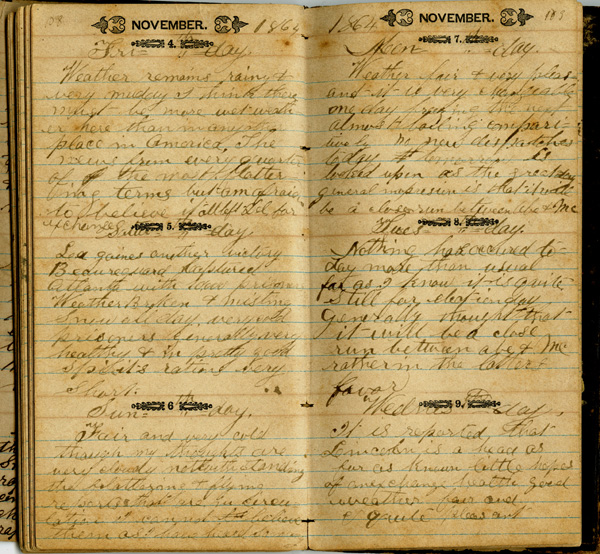 NOVEMBER. 1864
4.
Fri-day.
Weather remains rainy &
very muddy I think there
must be more wet weath
er here than in any other
place in America, the
news from every quarter
of the most flatter
ing terms but am afraid
to believe if
exchange
5.
day.
Lee gaines another victory
Beaureguard captured
Atlanta with 1200 prisoners
Weather Broken & missing
Snow all day, very cold
prisoners Generally very
healthy & in pretty good
Spirits rations very
Short.
6
Sun-day.
Fair and very cold
though my thoughts are
very cloudy notwithstanding
the flattering & flying
reports that is in circu
lation I cannot believe
them as I have heard
1864 NOVEMBER. 109
7.
Mon-day.
Weather fair & very pleas
and it is very
one day
almost boiling compari
tively No new dispatches
today, tomorrow is
looked upon as the great day
general supposesun is that it will
be a close run between Abe & Mc
8.
Tues-day.
Nothing has occured to-
day more than usual
far as I know it is quite
Still for election day
generally thought that
it will be a close
run between abe & Mc
rather in the latters
favor
9.
Wed-day.
It is reported that
Lincoln is a head as
far as known little hopes
of an exchange health good
weather fair and
quite pleasant